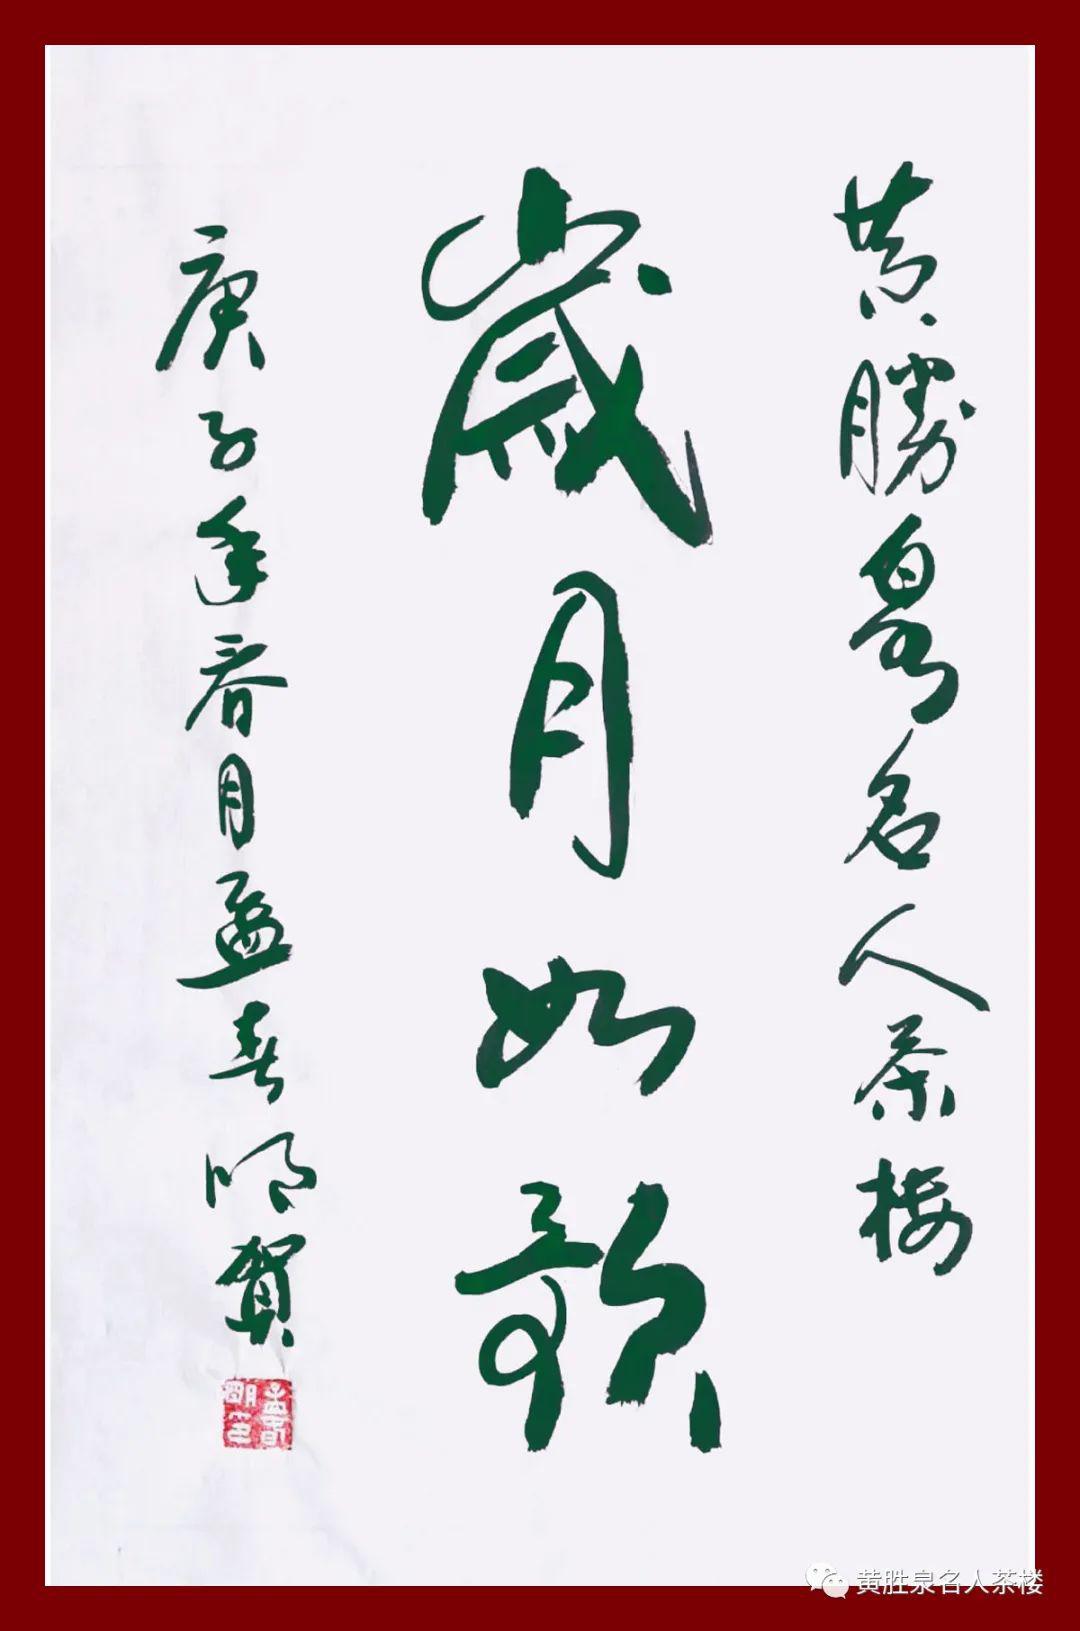 黄勝泉名人茶楼
歲月如歌
庚子年春月孟春明賀
黄胜泉名人茶楼